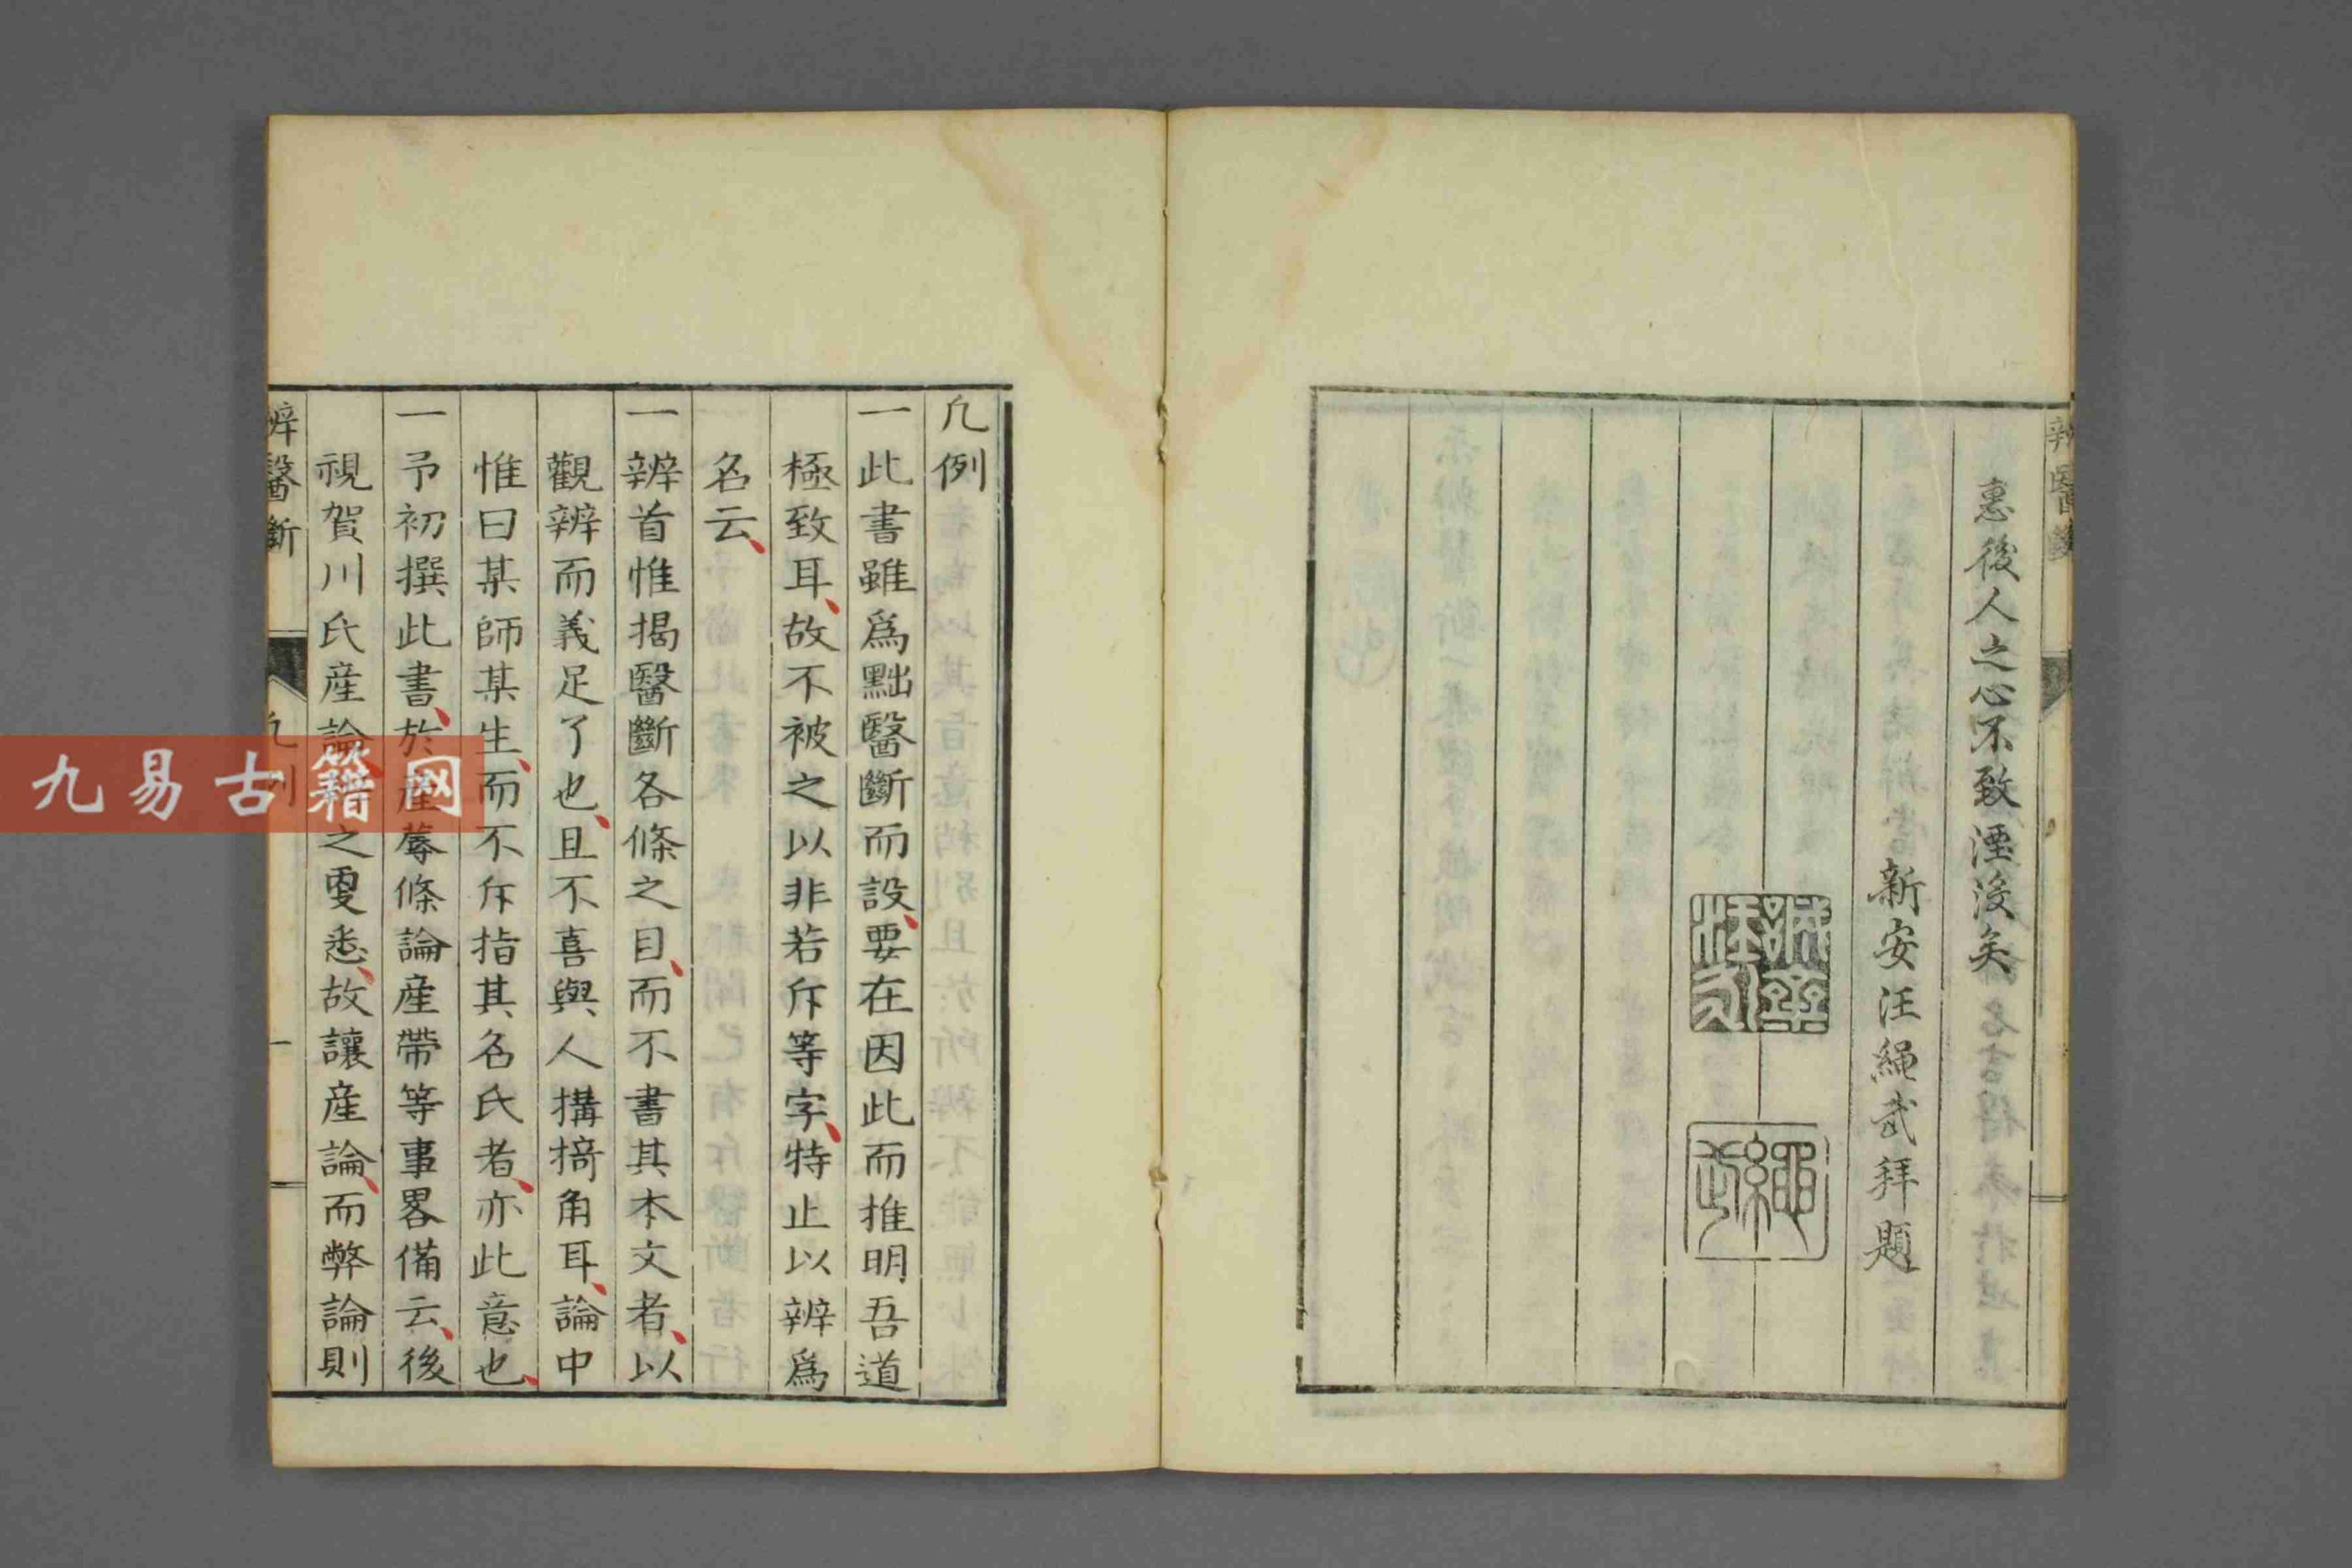 惠後人之心不致湮没矣
新安汪繩武拜題
繩武
凡例
一此書雖爲黜醫斷而設要在因此而推明吾道
極致耳故不被之以非若斥等字特止以辨爲
名云
一辨首惟揭醫斷各條之目而不書其本文者以
觀辨而義足了也且不喜與人搆掎角耳論中
惟曰某師某生而不斥指其名氏者亦此意也
一予初撰此書於產蓐條論產帶等事畧備云後
視賀川氏産論
之更悉故讓産論而弊論則
辨醫斷
凡例
一
九易古籍网